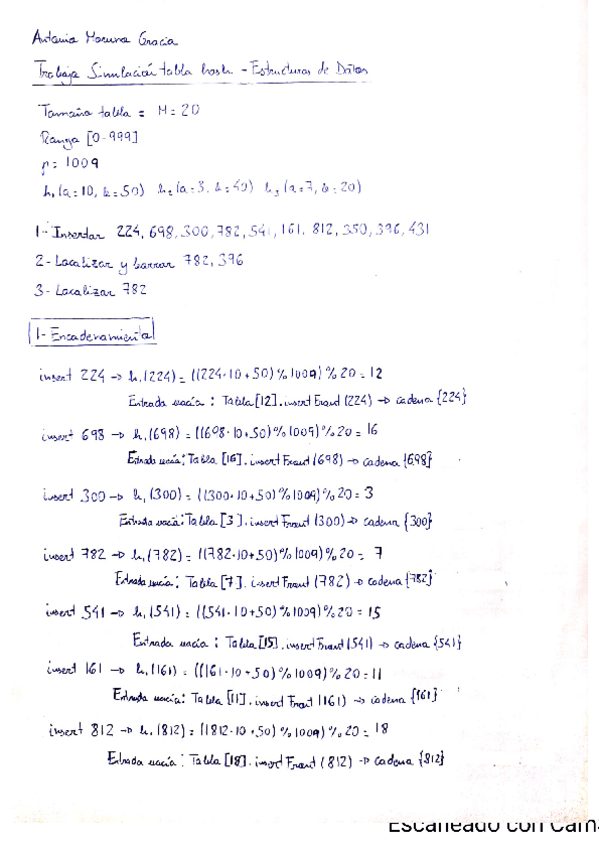 Antonio Moruno Gracia
Trabajo Simulación tabla hash - Estructuras de Datos
Tamaño tabla = M = 20
Rango [0-999]
p = 1009
h₁(a=10, b=50) h₂(a=3, b=40) h₃(a=7, b=20)
1- Insertar 224, 698, 300, 782, 541, 161, 812, 350, 396, 431
2- Localizar y borrar 782, 396
3- Localizar 782
1- Encadenamiento
insert 224 → h₁(224) = ((224·10+50)%1009)%20 = 12
Entrada vacía : Tabla[12].insertFront(224) → cadena {224}
insert 698 → h₁(698) = ((698·10+50)%1009)%20 = 16
Entrada vacía: Tabla [16].insertFront(698) → cadena {698}
insert 300 → h₁(300) = ((300·10+50)%1009)%20 = 3
Entrada vacía: Tabla [3].insertFront(300) → cadena {300}
insert 782 → h₁(782) = ((782·10+50)%1009)%20 = 7
Entrada vacía: Tabla [7].insertFront(782) → cadena {782}
insert 541 → h₁(541) = ((541·10+50)%1009)%20 = 15
Entrada vacía : Tabla[15].insertFront(541) → cadena {541}
insert 161 → h₁(161) = ((161·10+50)%1009)%20 = 11
Entrada vacía: Tabla [11].insertFront(161) → cadena {161}
insert 812 → h₁(812) = ((812·10+50)%1009)%20 = 18
Entrada vacía : Tabla [18].insertFront(812) → cadena {812}
Escaneado con Cam